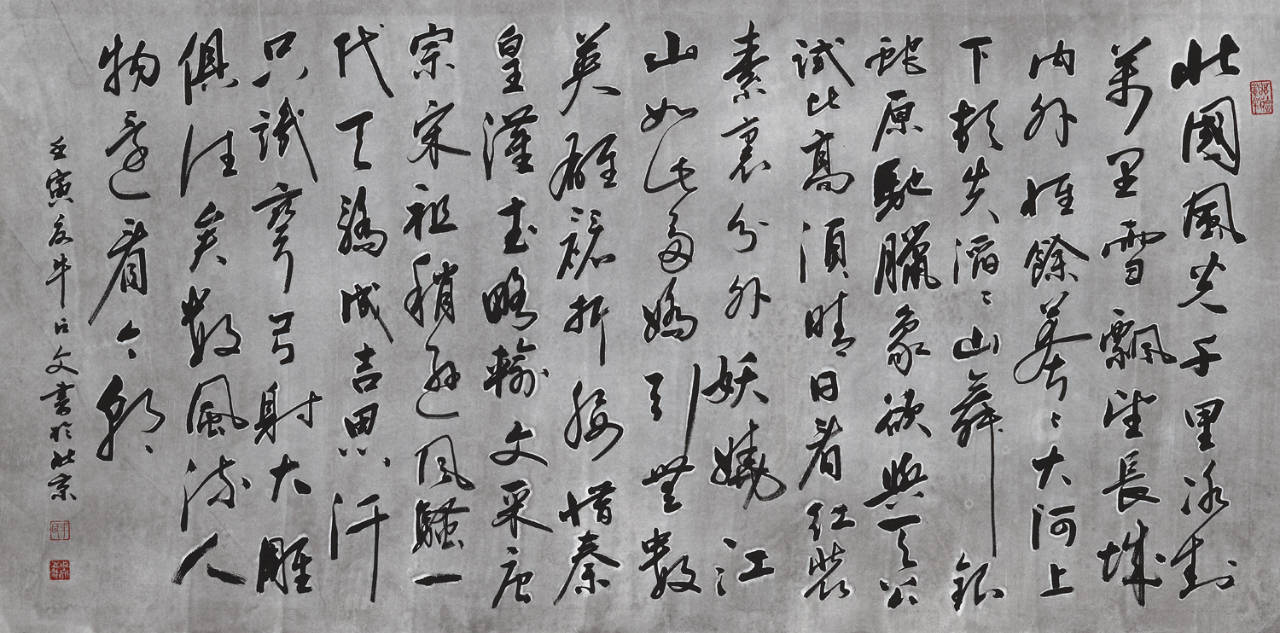 北國風光千里冰封
萬里雪飄望長城
内外惟餘莽〻大河上
下頓失滔〻山舞銀
蛇原馳臘象欲與天公
試比高須晴日看紅裝
素裹分外妖嬈江
山如此多嬌引無數
英雄競折腰惜秦
皇漢武略輸文采唐
宗宋祖稍遜風騷一
代天驕成吉思汗
只識彎弓射大雕
俱往矣數風流人
物還看今朝
壬寅牛占文書於北京